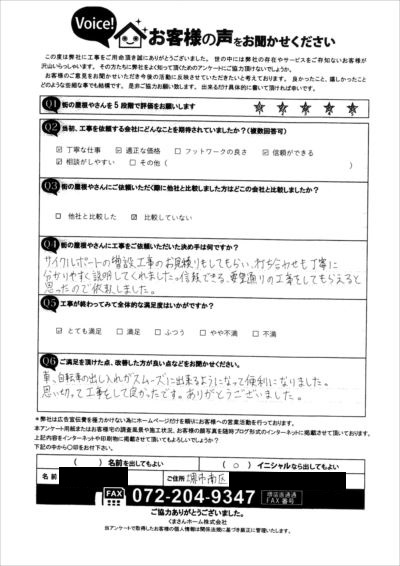 Voice! お客様の声をお聞かせください
この度は弊社に工事をご用命頂き誠にありがとうございました。世の中には弊社の存在やサービスをご存知ないお客様が
沢山いらっしゃいます。その方たちに弊社をよく知って頂くためのアンケートにご協力頂けないでしょうか。
お客様のご意見をお聞かせいただき今後の活動に反映させていただきたいと考えております。良かったこと、嬉しかったこと
どのような些細な事でも結構です。是非ご協力お願い致します。出来るだけ具体的に書いて頂ければ幸いです。
Q1 街の屋根やさんを5段階で評価をお願いします ☆ ☆ ☆ ☆ ☆
Q2 当初、工事を依頼する会社にどんなことを期待されていましたか?(複数回答可)
☑ 丁寧な仕事 ☑ 適正な価格 □ フットワークの良さ ☑ 信頼ができる
☑ 相談がしやすい □ その他( )
Q3 街の屋根やさんにご依頼いただく際に他社と比較しました方はどこの会社と比較しましたか?
□ 他社と比較した ☑ 比較していない
Q4 街の屋根やさんに工事をご依頼いただいた決め手は何ですか?
サイクルポートの増設工事のお見積りをしてもらい、打ち合わせも丁寧に
分かりやすく説明してくれました。信頼できる、要望通りの工事をしてもらえると
思ったので依頼しました。
Q5 工事が終わってみて全体的な満足度はいかがですか?
☑ とても満足 □ 満足 □ ふつう □ やや不満 □ 不満
Q6 ご満足を頂けた点、改善した方が良い点などをお聞かせください。
車、自転車の出し入れがスムーズに出来るようになって便利になりました。
思い切って工事をして良かったです。ありがとうございました。
*弊社は広告宣伝費を極力かけない為にホームページだけを頼りにお客様への営業活動を行っております。
本アンケート用紙またはお客様宅の調査風景や施工状況、お客様の顔写真を随時ブログ形式のインターネットに掲載させて頂いております。
上記内容をインターネットや印刷物に掲載させて頂いてもよろしいでしょうか?
下記の中から〇印をお付下さい。
( ) 名前を出してもよい ( ○ ) イニシャルなら出してもよい
名前 ご住所 堺市南区
FAX 072-204-9347 堺店直通 FAX番号
ご協力ありがとうございました。
くまさんホーム株式会社
当アンケートで取得したお客様の個人情報は関係法規に基づき厳正に管理いたします。